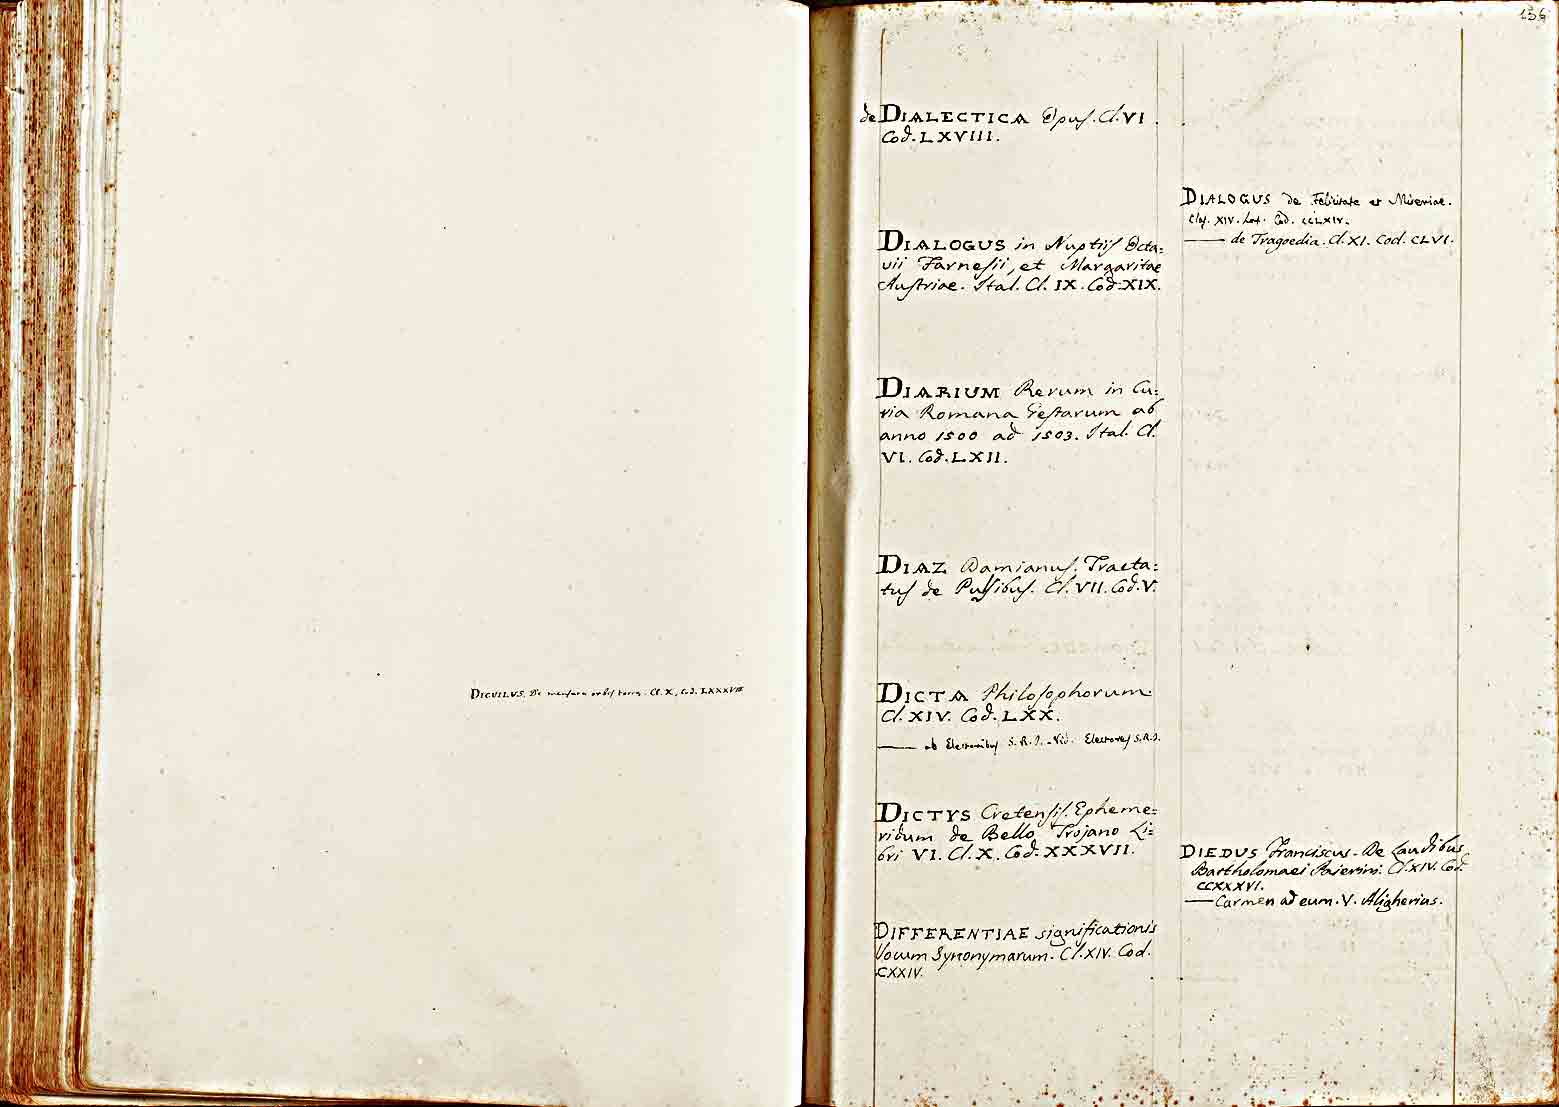 DICUILUS. De mensura orbis terræ. Cl. X, Cod. LXXXVIII
156
de DIALECTICA Opus. Cl. VI.
Cod. LXVIII.
DIALOGUS in Nuptiis Octa=
vii Farnesii, et Margaritae
Austriae. Ital. Cl. IX. Cod. XIX.
DIARIUM Rerum in Cu=
ria Romana Gestarum ab
anno 1500 ad 1503. Ital. Cl.
VI. Cod. LXII.
DIAZ Damianus. Tracta=
tus de Pulsibus. Cl. VII. Cod. V.
DICTA Philosophorum.
Cl. XIV. Cod. LXX.
—— ab Electoribus S. R. I. Vid. Electores S.R.I.
DICTYS Cretensis. Epheme=
ridum de Bello Trojano Li=
bri VI. Cl. X. Cod. XXXVII.
DIFFERENTIAE significationis
Vocum Synonymarum. Cl. XIV. Cod.
CXXIV.
DIALOGUS de Felicitate et Miseriae.
Clas. XIV. Lat. Cod. CCLXIV.
—— de Tragoedia. Cl. XI. Cod. CLVI.
DIEDUS Franciscus. De Laudibus
Bartholomaei Cl. XIV. Cod.
CCXXXVI.
—— Carmen ad eum. V. Aligherius.